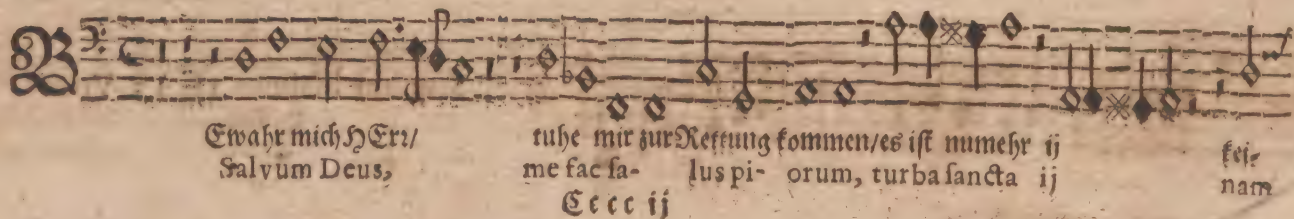 BEwahr mich HErr/ tuhe mir zur Rettung kommen/es ist numehr ij kei-
Salvum Deus, me fac sa- lus pi- orum, turba sancta ij nam
Cccc ij